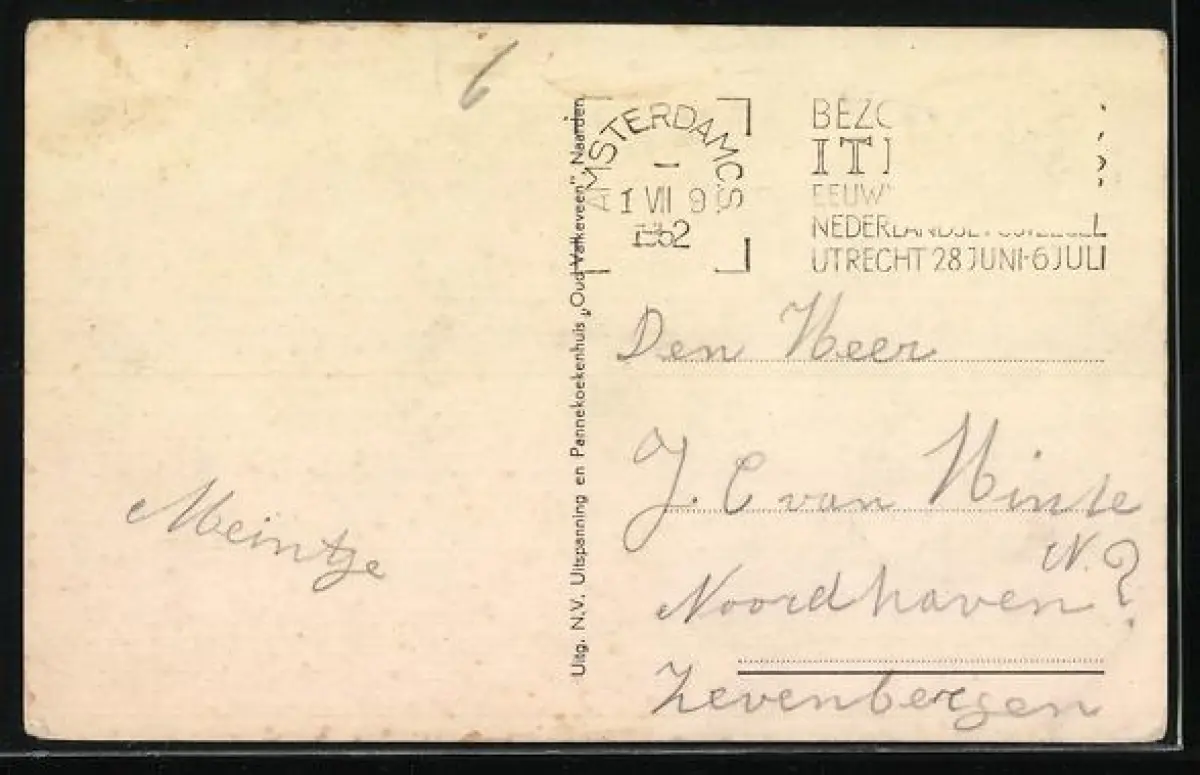 6
AMSTERDAM CS
1 VII 9
1952
BEZO
ITI
EEUW
NEDERLANDSE POSTZEGEL
UTRECHT 28 JUNI-6 JULI
Uitg. N.V. Uitspanning en Pannekoekenhuis „Oud Valkeveen", Naarden
Den Heer
J. C van Hinte
Noordhaven N. ?
Zevenbergen
Meintje